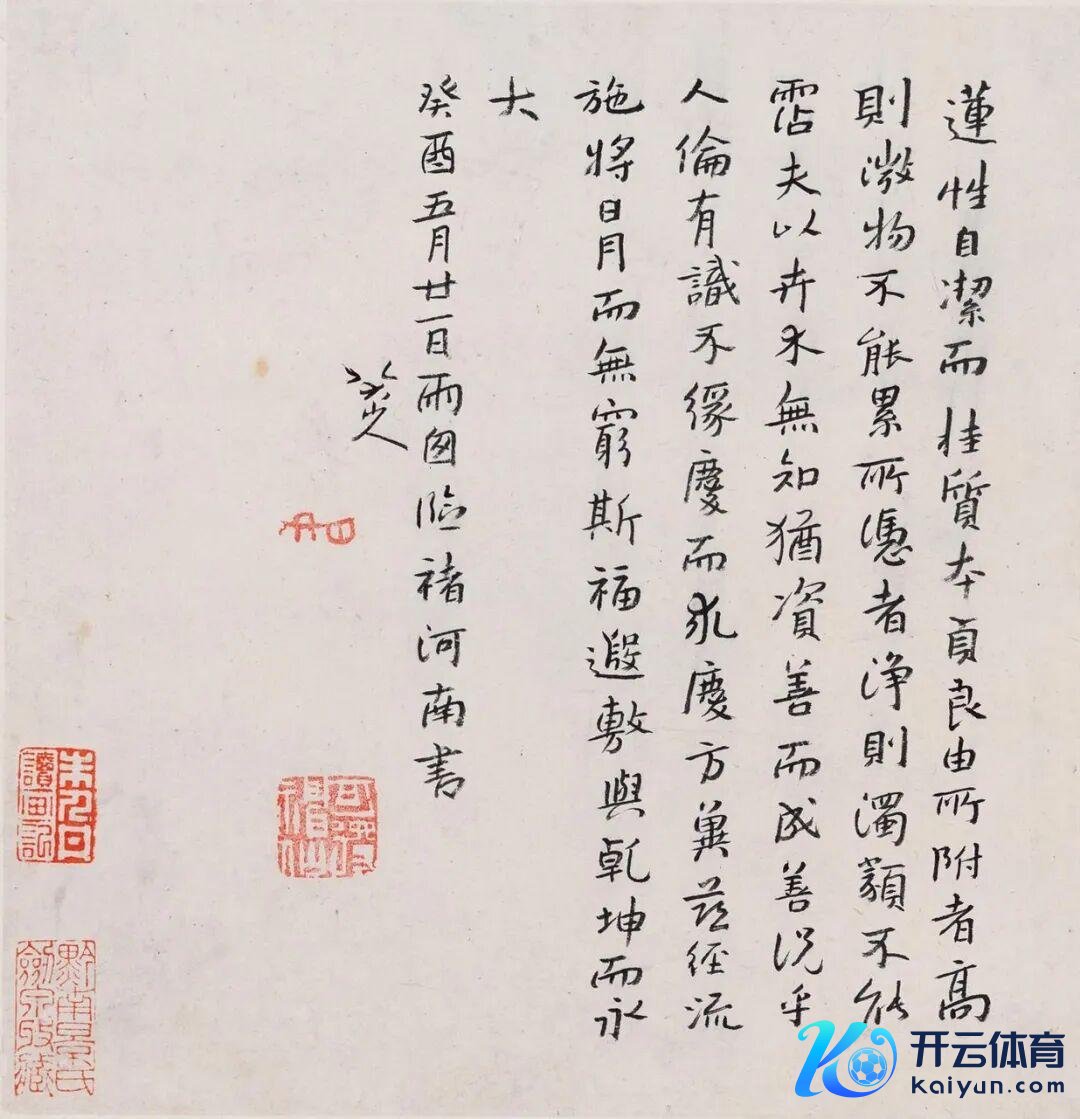 蓮性自潔而桂質本貞良由所附者高
則微物不能累所憑者淨則濁類不能
霑夫以卉木無知猶資善而成善況乎
人倫有識不緣慶而求慶方冀茲經流
施將日月而無窮斯福遐敷與乾坤而永
大
癸酉五月廿一日雨窗臨褚河南書
八大山人
朱九日
讀画記
黔南呂氏
劍泉攷藏
开云体育
kaiyun.com